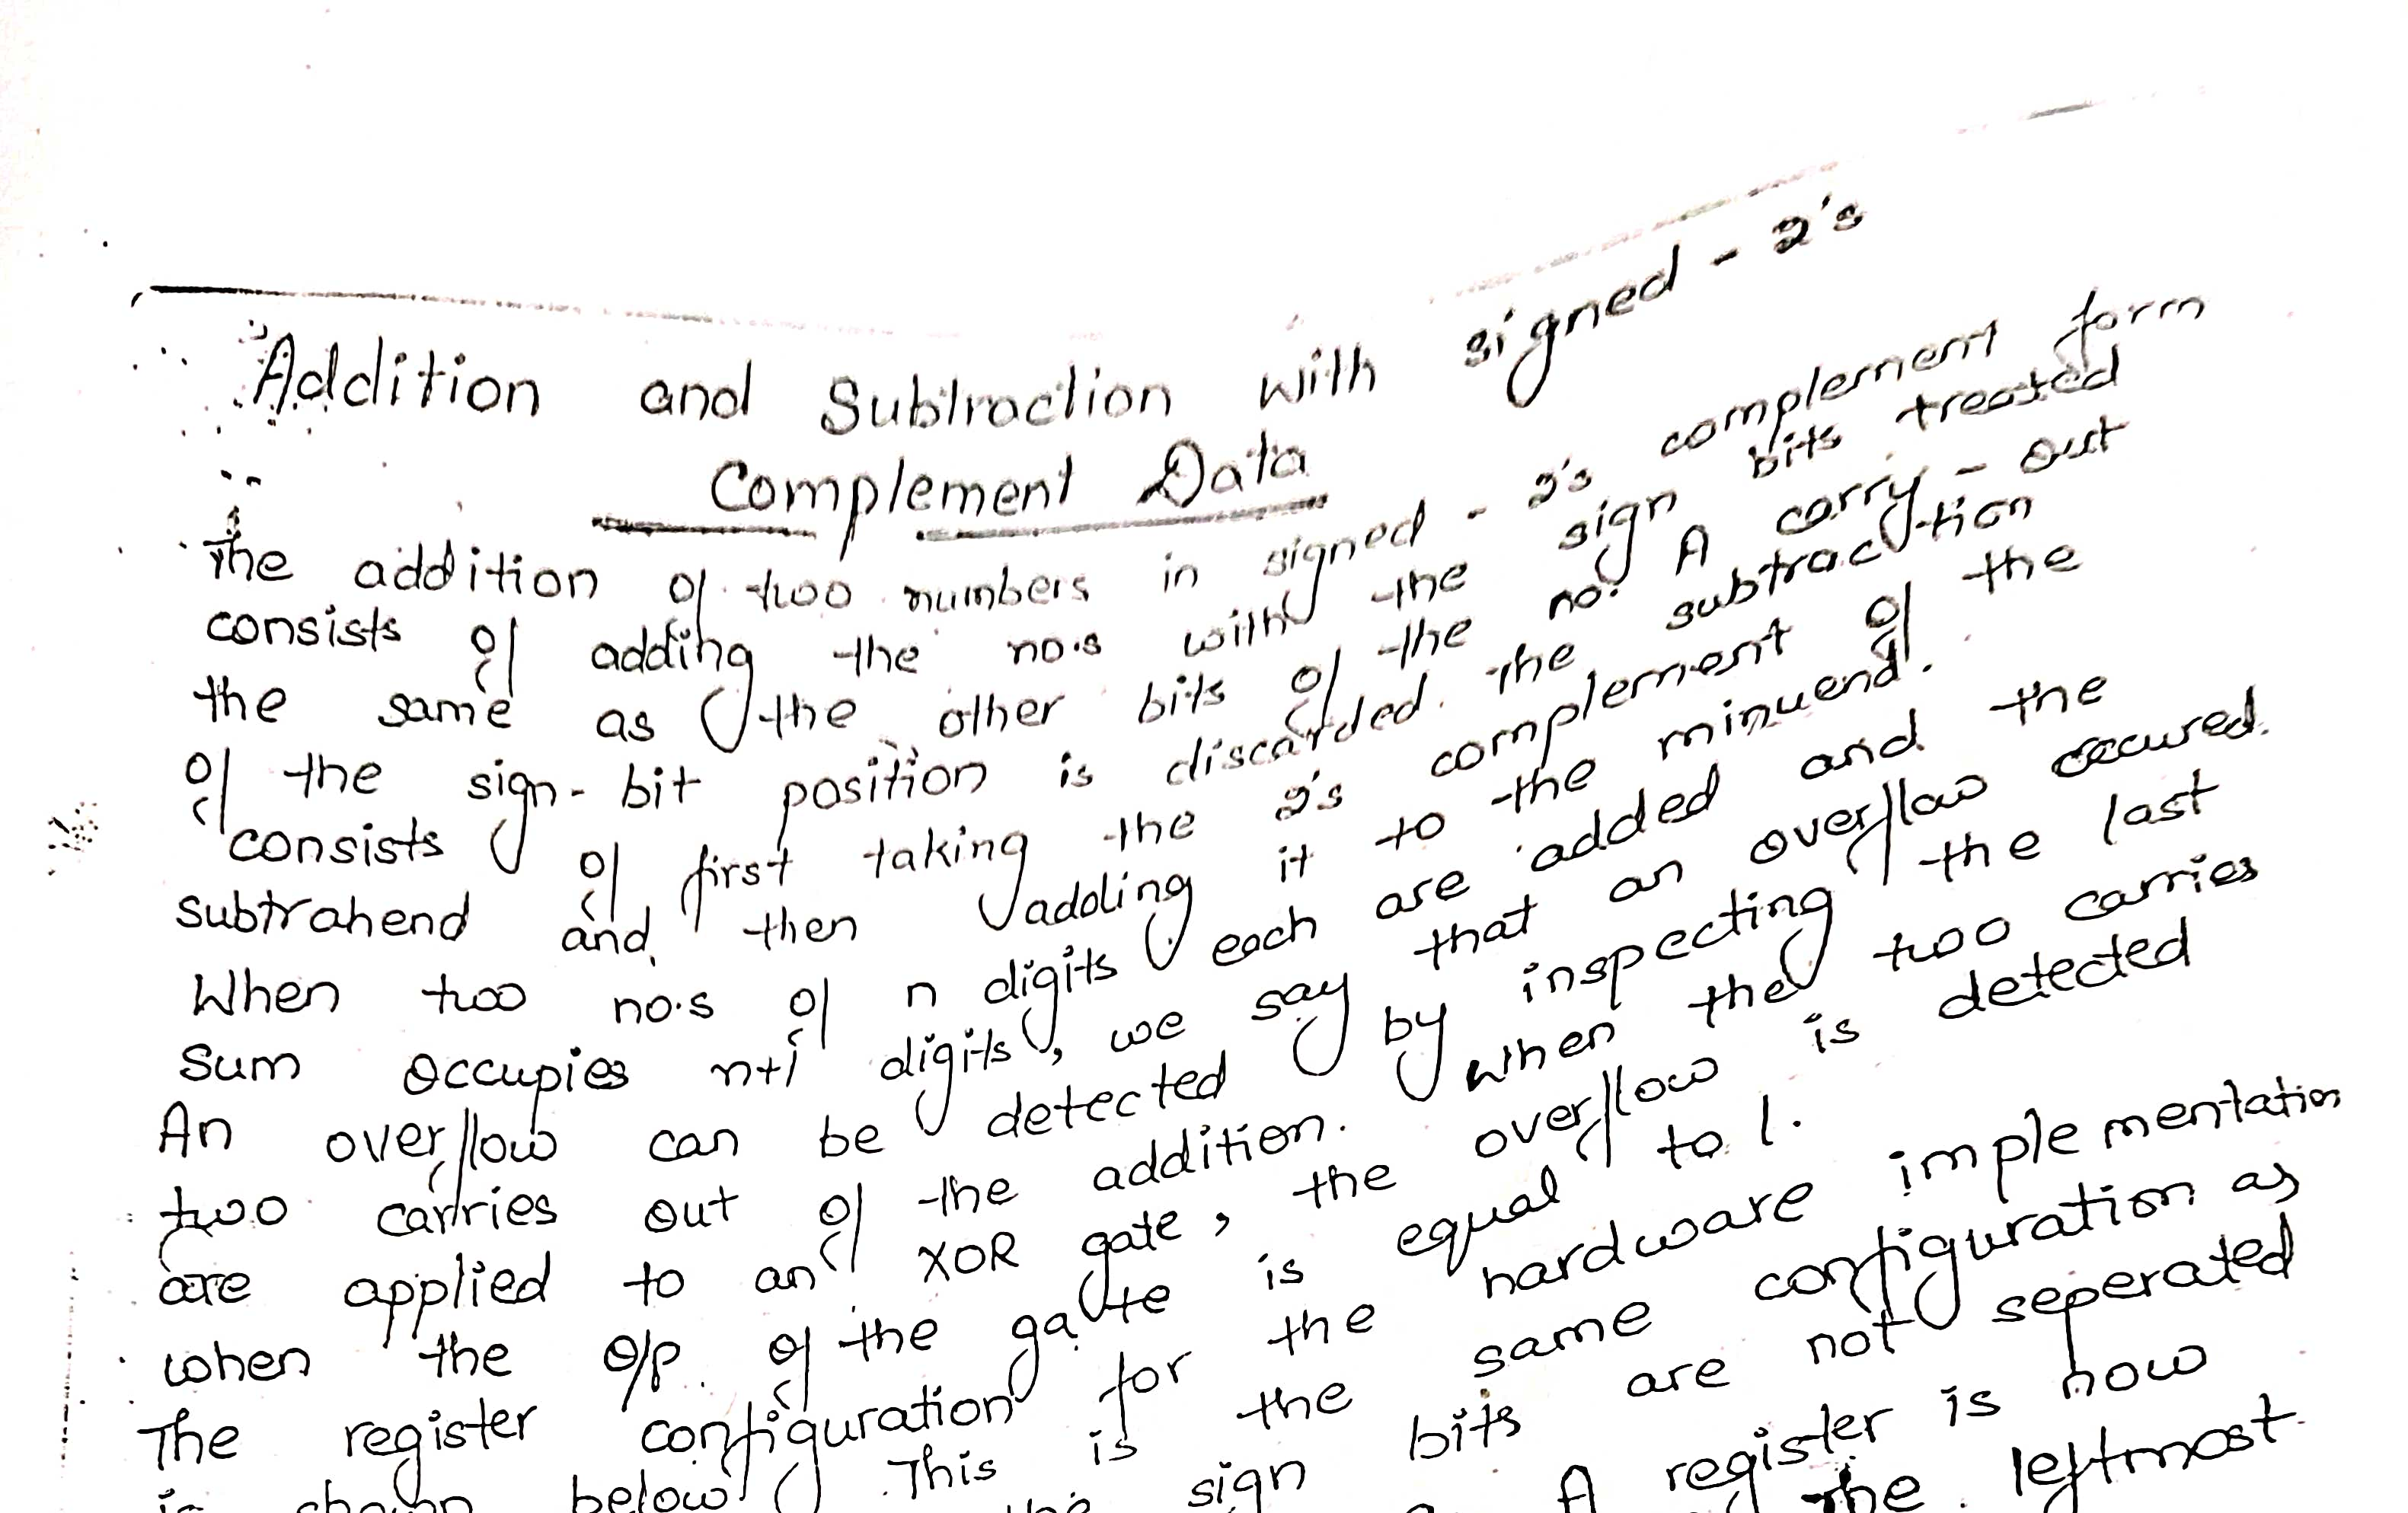 Addition and Subtraction with signed - 2's
Complement Data
The addition of two numbers in signed - 2's complement form
consists of adding the no.s with the sign bits treated
the same as the other bits of the no. A carry - out
of the sign-bit position is discarded. The subtraction
consists of first taking the 2's complement of the
subtrahend and then adding it to the minuend.
When two no.s of n digits each are added and the
sum occupies n+1 digits, we say that an overflow occured.
An overflow can be detected by inspecting the last
two carries out of the addition. When the two carries
are applied to an XOR gate, the overflow is detected
when the o/p of the gate is equal to 1.
The register configuration for the hardware implementation
is shown below. This is the same configuration as
the sign bits are not seperated
A register is now
The leftmost